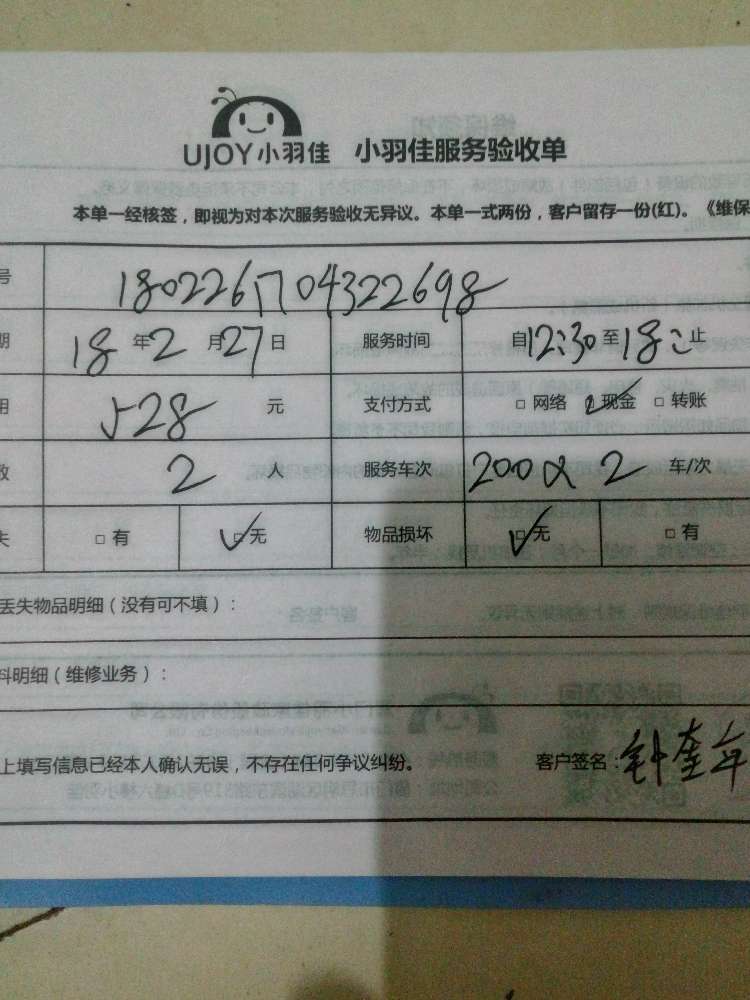 UJOY小羽佳 小羽佳服务验收单
本单一经核签，即视为对本次服务验收无异议。本单一式两份，客户留存一份(红)。《维保
号 1802261704322698
期 18年2月27日 服务时间 自12:30至18:止
用 528元 支付方式 □网络 ☑现金 □转账
数 2 服务车次 200×2 车/次
失 □有 ☑无 物品损坏 ☑无 □有
丢失物品明细（没有可不填）：
料明细（维修业务）：
上填写信息已经本人确认无误，不存在任何争议纠纷。 客户签名：